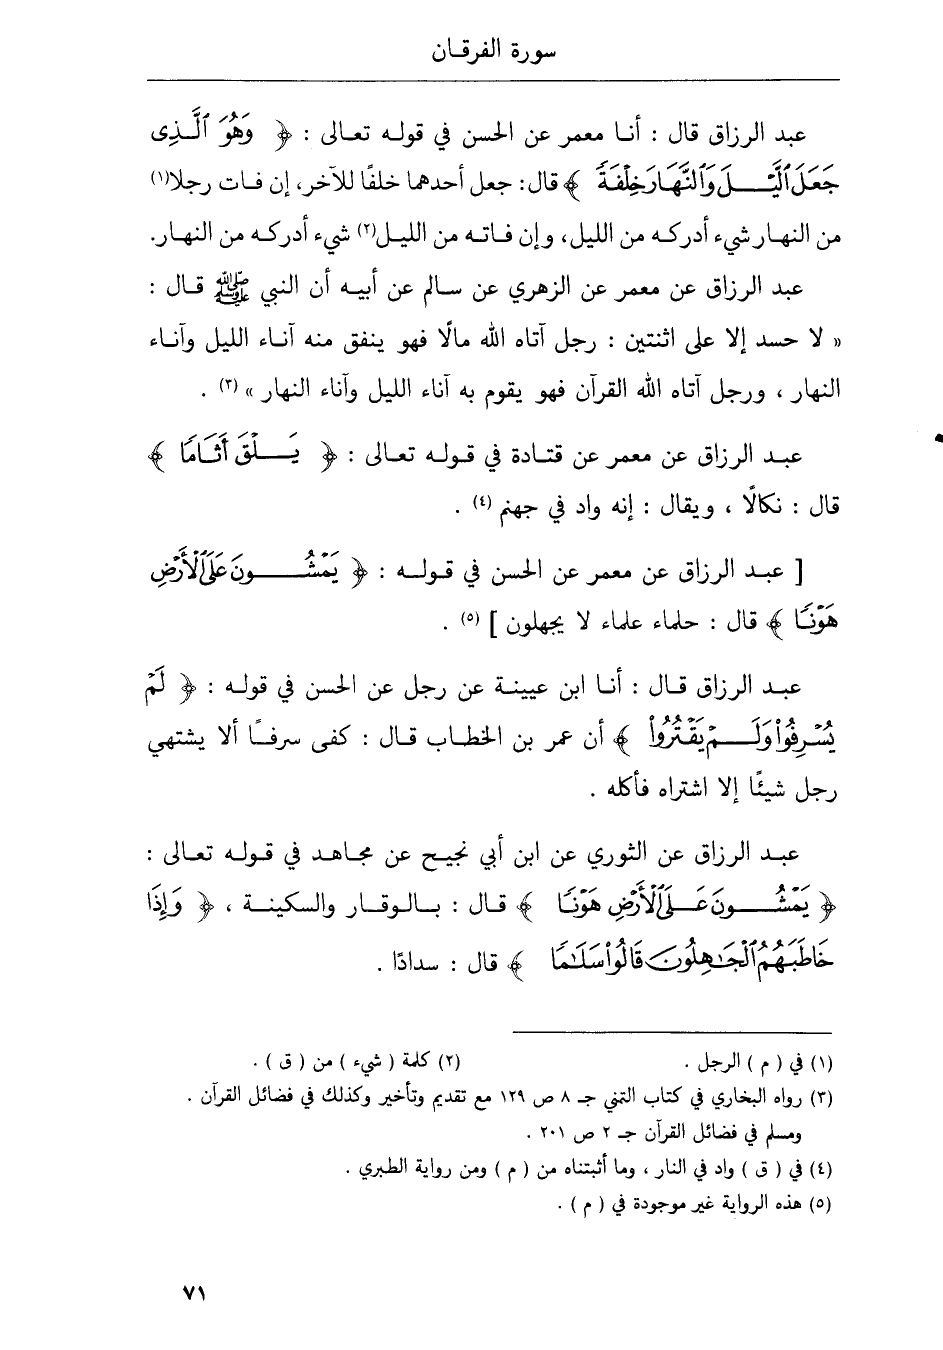 سورة الفرقان
عبد الرزاق قال : أنا معمر عن الحسن في قوله تعالى : ﴿ وَهُوَ ٱلَّذِى
جَعَلَ ٱلَّيْلَ وَٱلنَّهَارَ خِلْفَةً ﴾ قال : جعل أحدهما خلفًا للآخر، إن فات رجلا(١)
من النهار شيء أدركه من الليل، وإن فاته من الليل(٢) شيء أدركه من النهار.
عبد الرزاق عن معمر عن الزهري عن سالم عن أبيه أن النبي ﷺ قال :
« لا حسد إلا على اثنتين : رجل آتاه الله مالًا فهو ينفق منه آناء الليل وآناء
النهار ، ورجل آتاه الله القرآن فهو يقوم به آناء الليل وآناء النهار » (٣) .
عبد الرزاق عن معمر عن قتادة في قوله تعالى : ﴿ يَلْقَ أَثَامًا ﴾
قال : نكالًا ، ويقال : إنه واد في جهنم (٤) .
[ عبد الرزاق عن معمر عن الحسن في قوله : ﴿ يَمْشُونَ عَلَى ٱلْأَرْضِ
هَوْنًا ﴾ قال : حلماء علماء لا يجهلون ] (٥) .
عبد الرزاق قال : أنا ابن عيينة عن رجل عن الحسن في قوله : ﴿ لَمْ
يُسْرِفُوا۟ وَلَمْ يَقْتُرُوا۟ ﴾ أن عمر بن الخطاب قال : كفى سرفًا ألا يشتهي
رجل شيئًا إلا اشتراه فأكله .
عبد الرزاق عن الثوري عن ابن أبي نجيح عن مجاهد في قوله تعالى :
﴿ يَمْشُونَ عَلَى ٱلْأَرْضِ هَوْنًا ﴾ قال : بالوقار والسكينة ، ﴿ وَإِذَا
خَاطَبَهُمُ ٱلْجَٰهِلُونَ قَالُوا۟ سَلَٰمًا ﴾ قال : سدادًا .
(١) في ( م ) الرجل . (٢) كلمة ( شيء ) من ( ق ) .
(٣) رواه البخاري في كتاب التمني جـ ٨ ص ١٢٩ مع تقديم وتأخير وكذلك في فضائل القرآن .
ومسلم في فضائل القرآن جـ ٢ ص ٢٠١ .
(٤) في ( ق ) واد في النار ، وما أثبتناه من ( م ) ومن رواية الطبري .
(٥) هذه الرواية غير موجودة في ( م ) .
٧١